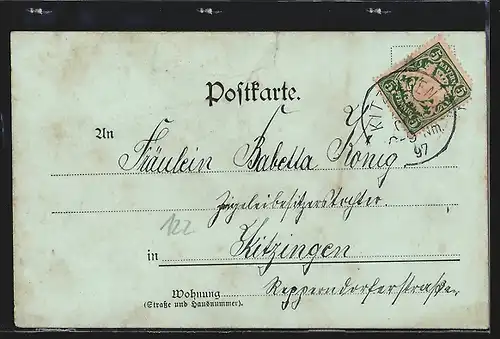 Postkarte.
An
Fräulein Babetta König
Ziegeleibesitzerstochter.
122
in Kitzingen
Wohnung Repperndorferstraße.
(Straße und Hausnummer).
5 5
KITZ
Nm.
97